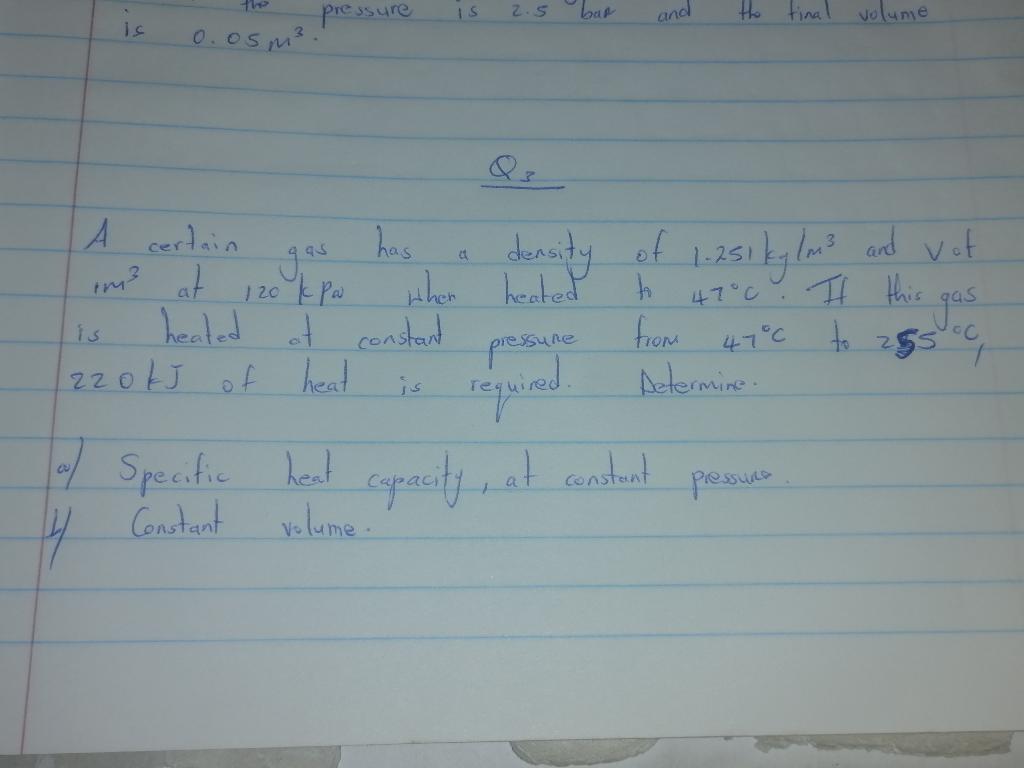 the pressure is 2.5 bar and the final volume
is 0.05m³.
Q3
A certain gas has a density of 1.251kg/m³ and V of
1m³ at 120 kpa when heated to 47°C. If this gas
is heated at constant pressure from 47°C to 255°C,
220kJ of heat is required. Determine.
a/ Specific heat capacity, at constant pressure.
b/ Constant volume.